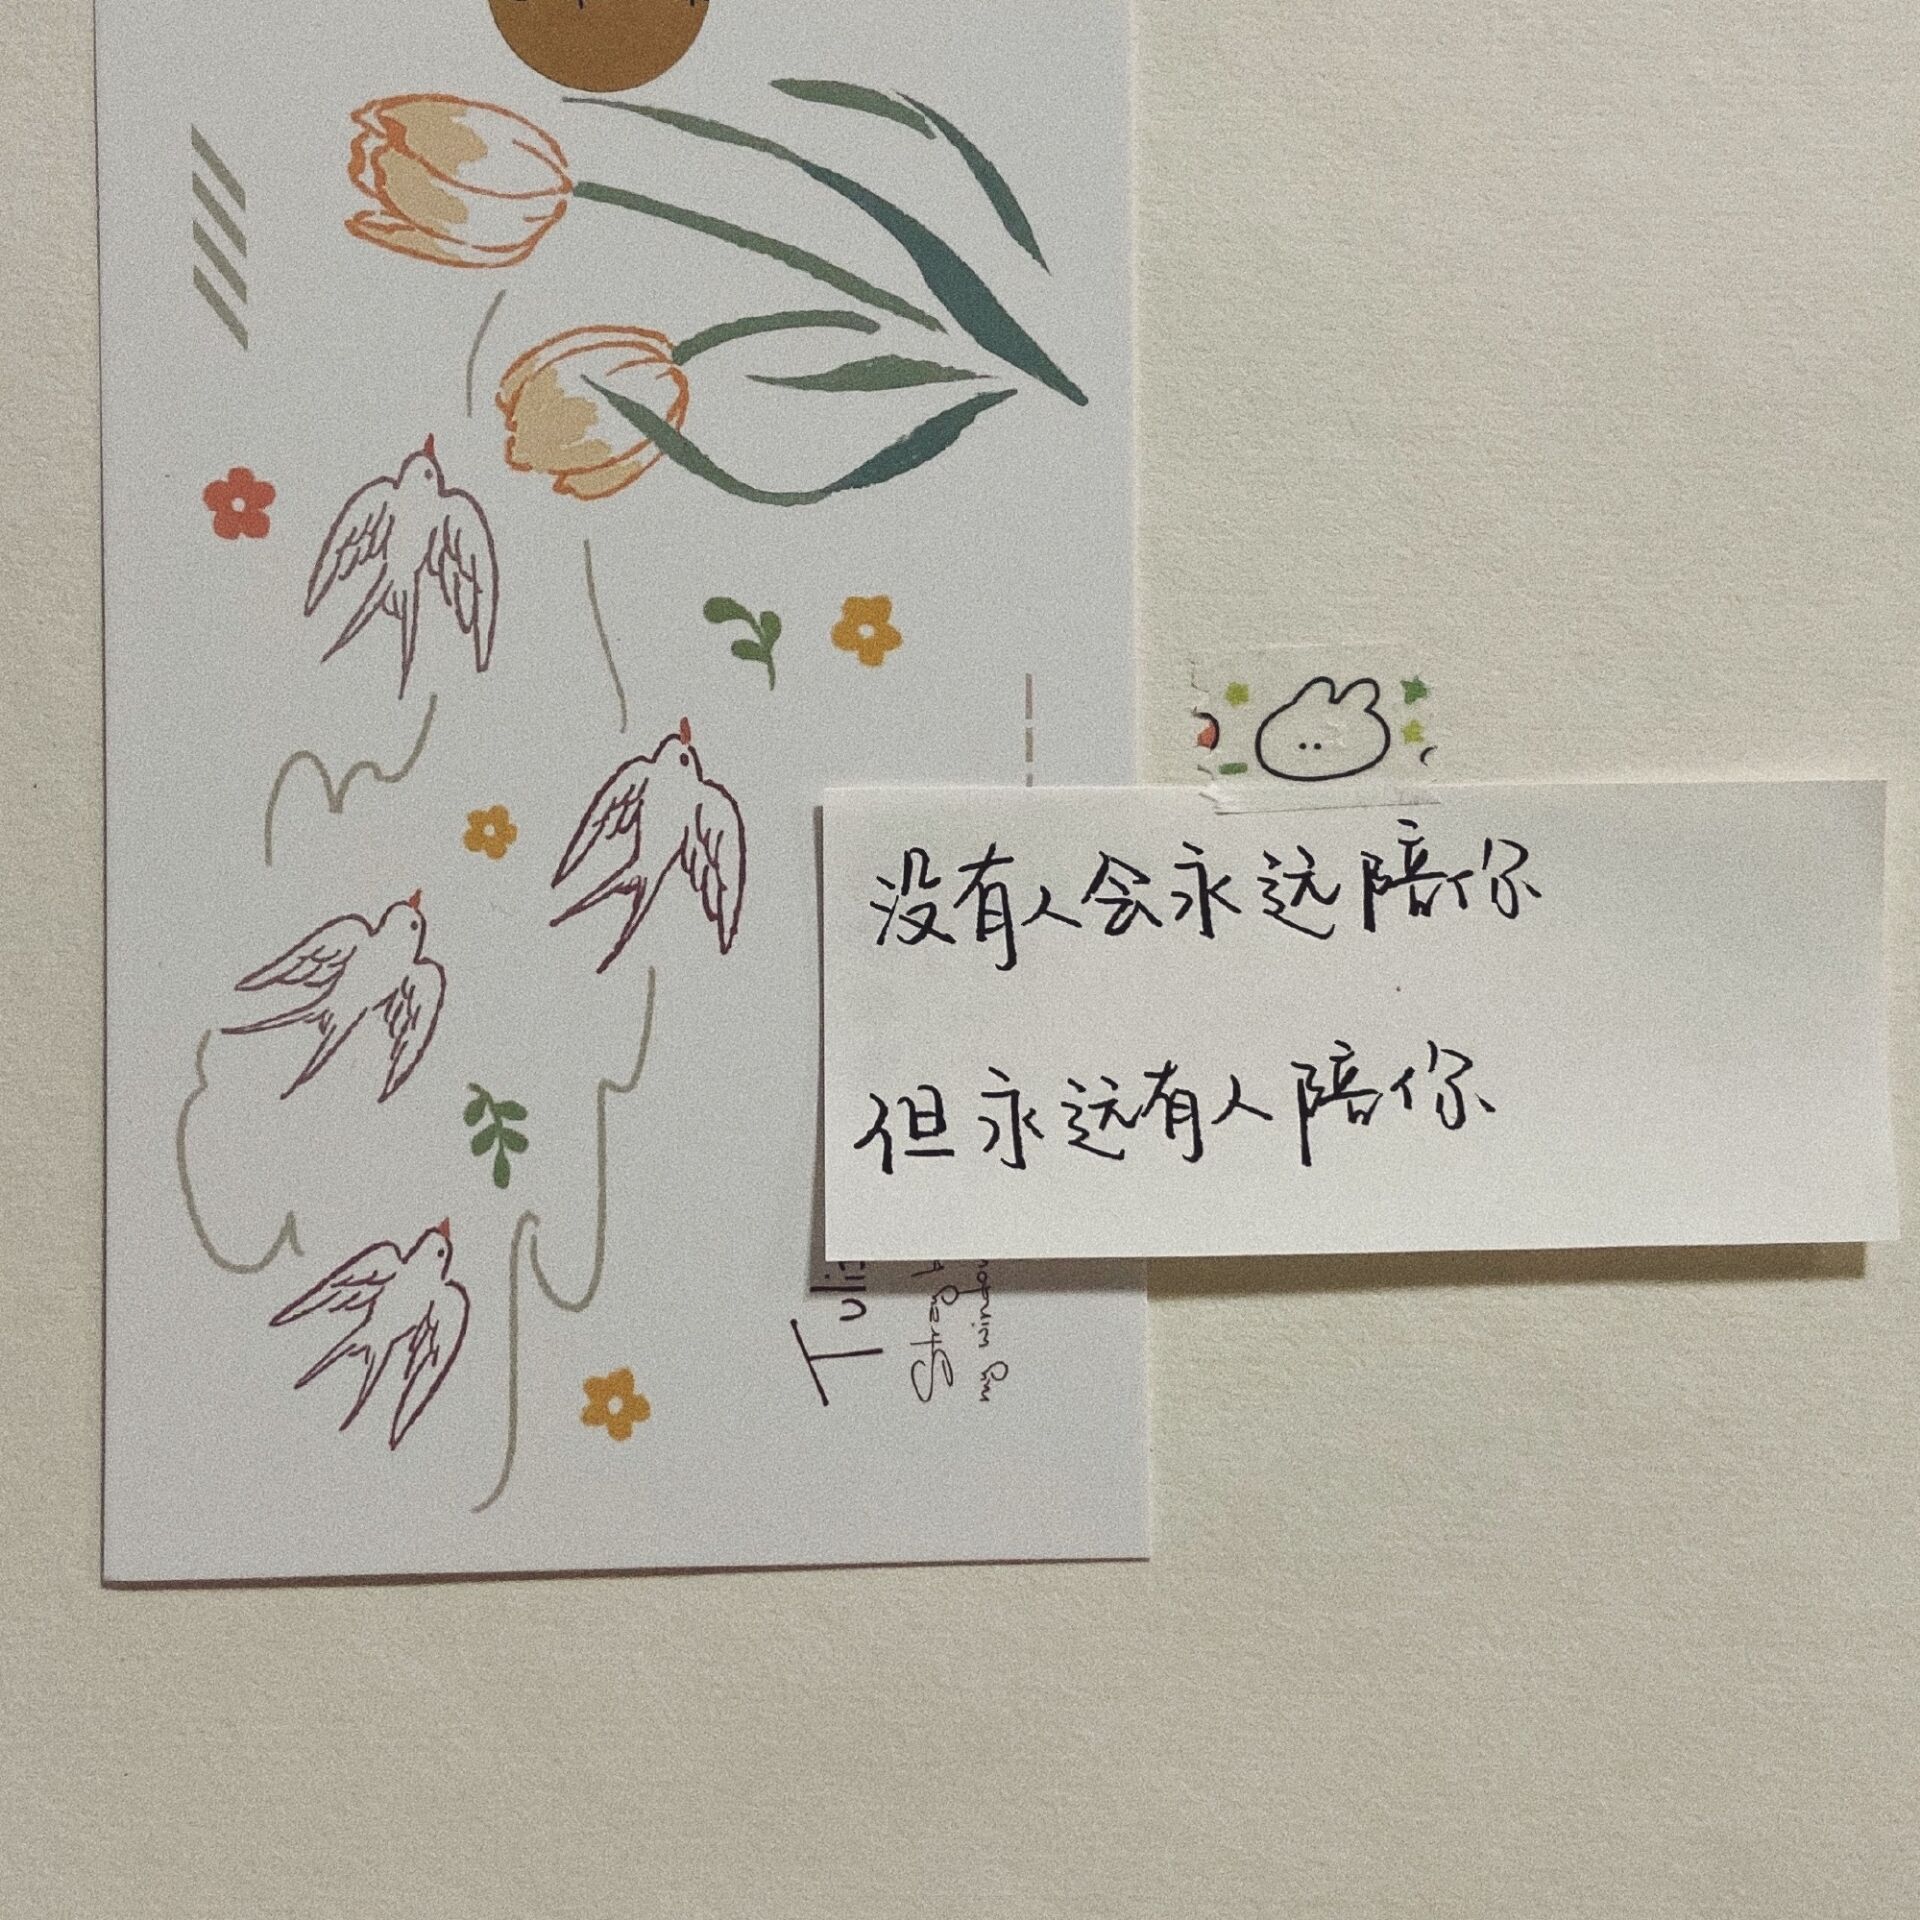 没有人会永远陪你
但永远有人陪你